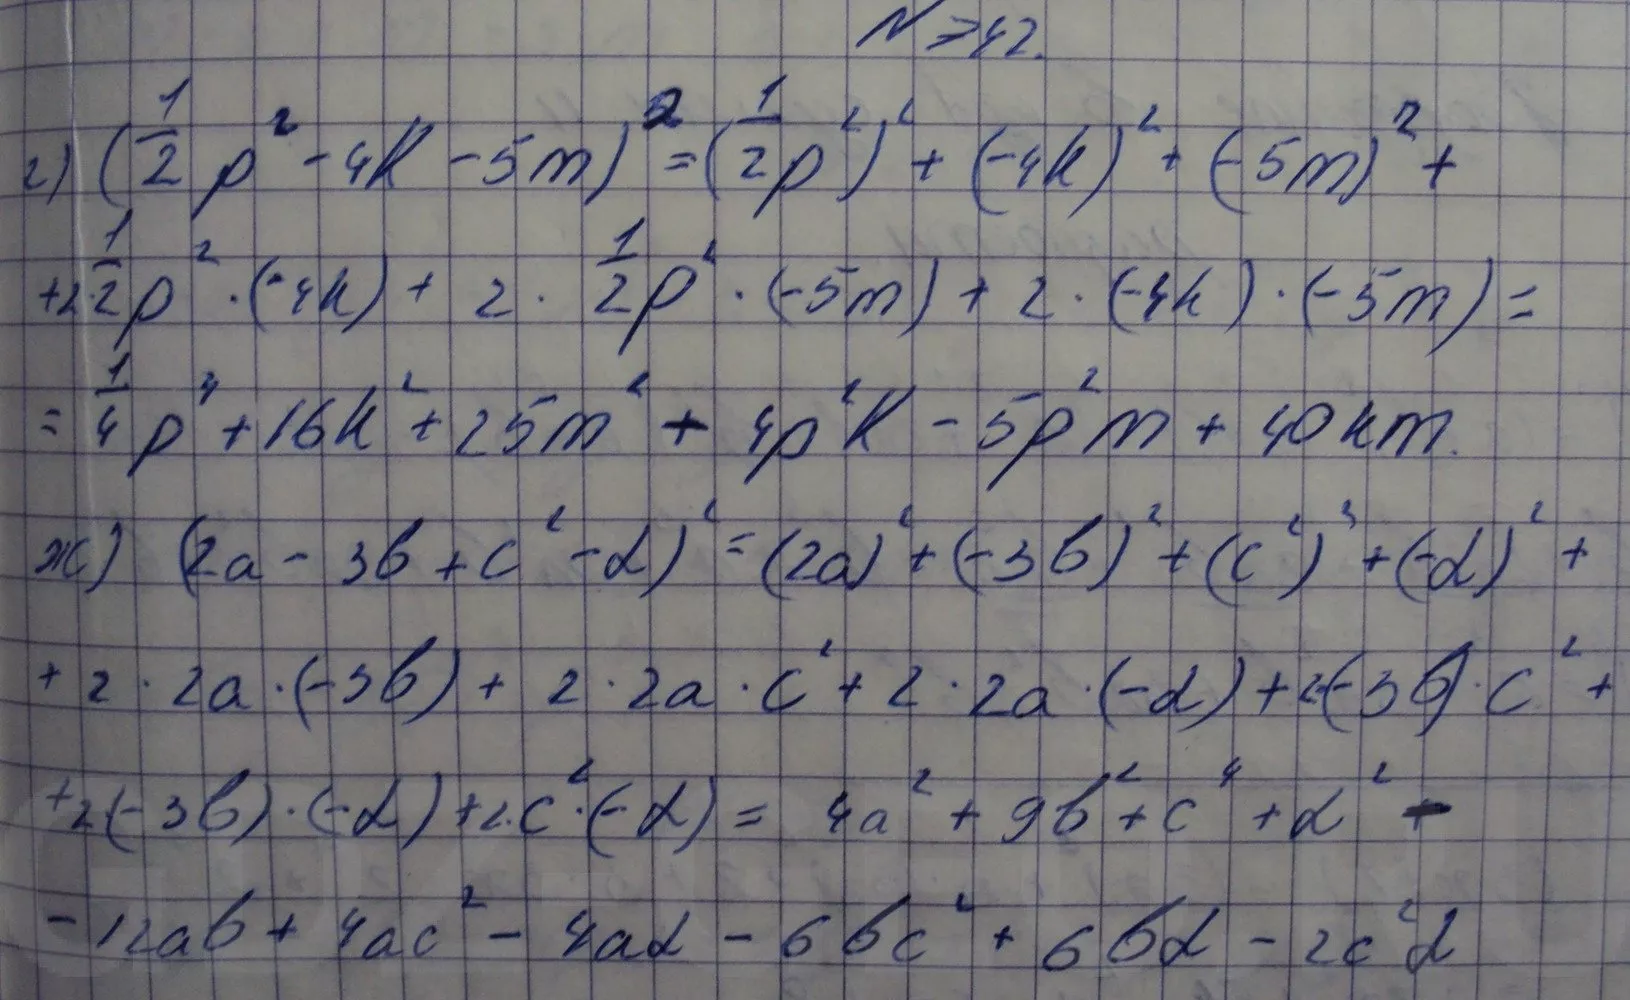 N 742.
г) (1/2 p² - 4k - 5m)² = (1/2 p²)² + (-4k)² + (-5m)² +
+ 2 · 1/2 p² · (-4k) + 2 · 1/2 p² · (-5m) + 2 · (-4k) · (-5m) =
= 1/4 p⁴ + 16k² + 25m² - 4p²k - 5p²m + 40km.
ж) (2a - 3b + c² - d)² = (2a)² + (-3b)² + (c²)² + (-d)² +
+ 2 · 2a · (-3b) + 2 · 2a · c² + 2 · 2a · (-d) + 2·(-3b) · c² +
+ 2(-3b) · (-d) + 2·c² · (-d) = 4a² + 9b² + c⁴ + d² -
- 12ab + 4ac² - 4ad - 6bc² + 6bd - 2c²d